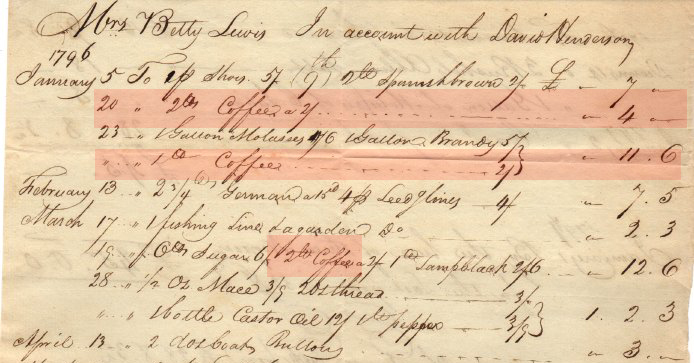 Mrs Betty Lewis In account with David Henderson
1796
January 5 To 1 pr Shoes 5/ (9th) 2 lb Spanish brown 2/ £ " 7 "
20 " 2 lbs Coffee a 2/ " 4 "
23 " 1 Gallon Molasses 4/6 1 Gallon Brandy 5/
" " 1 lb Coffee 2/ } " 11. 6
February 13 " 2 3/4 lb German 4 pr Leed glines 4/ " 7. 5
March 17 " 1 fishing Line a garden Do " 2. 3
19 " 6 lbs Sugar 6/ 2 lb Coffee a 2/ 1 lb Lampblack 2/6 " 12. 6
28 " 1/2 Oz Mace 3/9 2 oz thread 3/
" 1 bottle Castor Oil 12/ 1 lb pepper 3/9 } 1. 2. 3
April 13 " 2 doz boat Buttons " 3 "